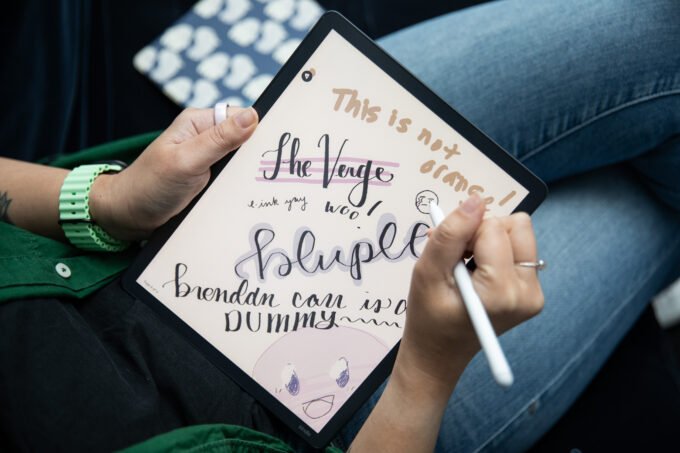 This is not
orange!
The Verge
e-ink yay woo!
blupie
brenddn carr is a
DUMMY